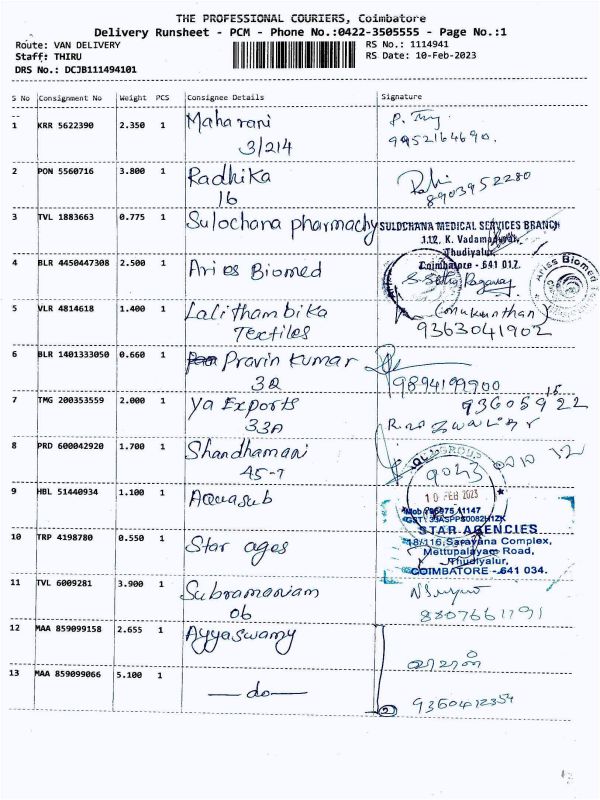 THE PROFESSIONAL COURIERS, Coimbatore
Delivery Runsheet - PCM - Phone No.:0422-3505555 - Page No.:1
Route: VAN DELIVERY
RS No.: 1114941
Staff: THIRU
RS Date: 10-Feb-2023
DRS No.: DCJB111494101
S No Consignment No Weight PCS Consignee Details Signature
1 KRR 5622390 2.350 1 Maharani
3/214
9952164690.
2 PON 5560716 3.800 1 Radhika
16
8903952280
3 TVL 1883663 0.775 1 Sulochana pharmachy
SULOCHANA MEDICAL SERVICES BRANCH
Thudiyalur,
Coimbatore - 641 017.
4 BLR 4450447308 2.500 1 Aries Biomed
Ariss Biomed
5 VLR 4814618 1.400 1 Lalithambika
Textiles
(mukunthan)
9363041902
6 BLR 1401333050 0.660 1 Pravin Kumar
3Q
9894199900
7 TMG 200353559 2.000 1 Ya Exports
33A
8 PRD 600042920 1.700 1 Shandhamani
45-7
9 HBL 51440934 1.100 1 Aquasub
10 FEB 2023
10 TRP 4198780 0.550 1 Star ages
STAR AGENCIES
18/116, Saravana Complex,
Mettupalayam Road,
Thudiyalur,
COIMBATORE - 641 034.
11 TVL 6009281 3.900 1 Subramaniam
06
8807661191
12 MAA 859099158 2.655 1 Ayyaswamy
13 MAA 859099066 5.100 1 —do—
②
9360412354